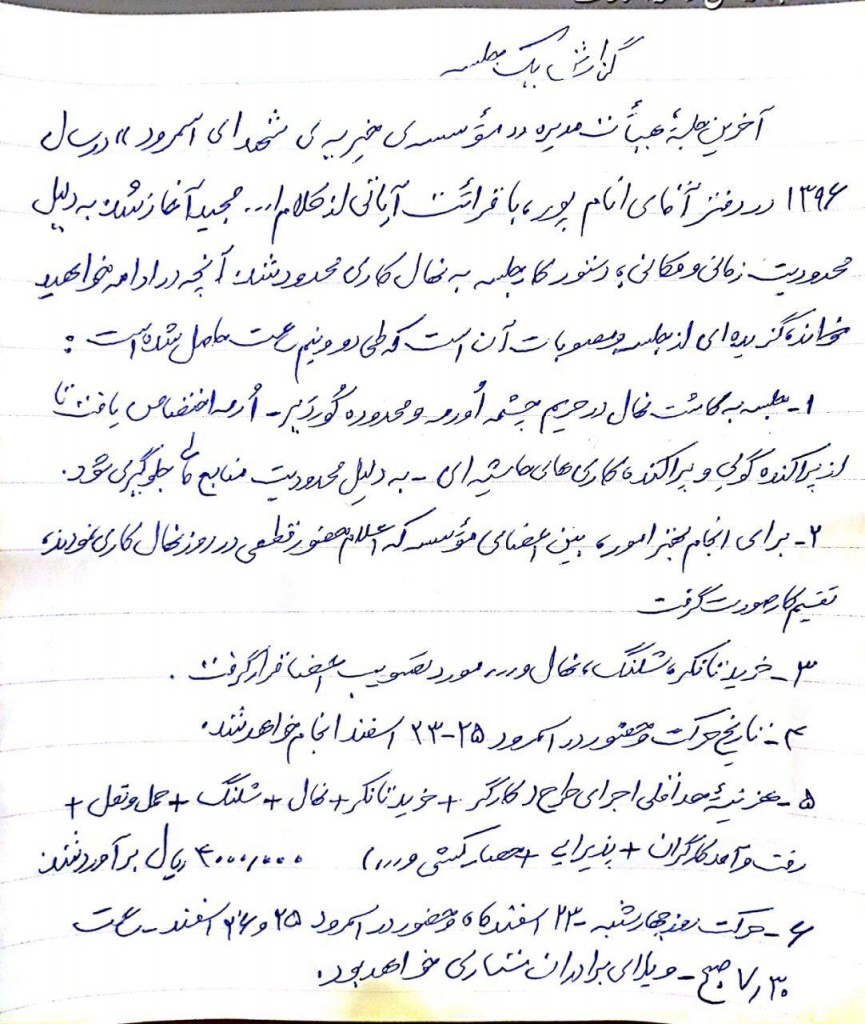 گزارش یک جلسه
آخرین جلسهٔ هیأت مدیره «مؤسسه‌ی خیریه‌ی شهدای اسمرود» در سال
۱۳۹۶ در دفتر آقای امام پور، با قرائت آیاتی از کلام ا... مجید آغاز شد. به دلیل
محدودیت زمانی و مکانی، دستور کار جلسه به نهال کاری محدود شد. آنچه در ادامه خواهید
خواند، گزیده‌ای از جلسه و مصوبات آن است که طی دو و نیم ساعت حاصل شده است:
۱- جلسه به کاشت نهال در حریم چشمه اُورمه و محدوده کُوردَیر - اُرمه اختصاص یافت تا
از پراکنده گویی و پراکنده کاری های حاشیه‌ای - به دلیل محدودیت منابع مالی جلوگیری شود.
۲- برای انجام بهتر امور، بین اعضای مؤسسه که اعلام حضور قطعی در روز نهال کاری نمودند،
تقسیم کار صورت گرفت
۳- خرید تانکر، شلنگ، نهال و... مورد تصویب اعضا قرار گرفت.
۴- تاریخ حرکت و حضور در اسمرود ۲۵-۲۳ اسفند انجام خواهد شد.
۵- هزینهٔ حداقلی اجرای طرح (کارگر + خرید تانکر + نهال + شلنگ + حمل و نقل +
رفت و آمد کارگران + پذیرایی + حصار کشی و...) ۴۰۰۰/۰۰۰ ریال برآورد شد.
۶- حرکت روز چهارشنبه ۲۳ اسفندماه و حضور در اسمرود ۲۵ و ۲۴ اسفند - ساعت
۷/۳۰ صبح - ویلای برادران ستاری خواهد بود.